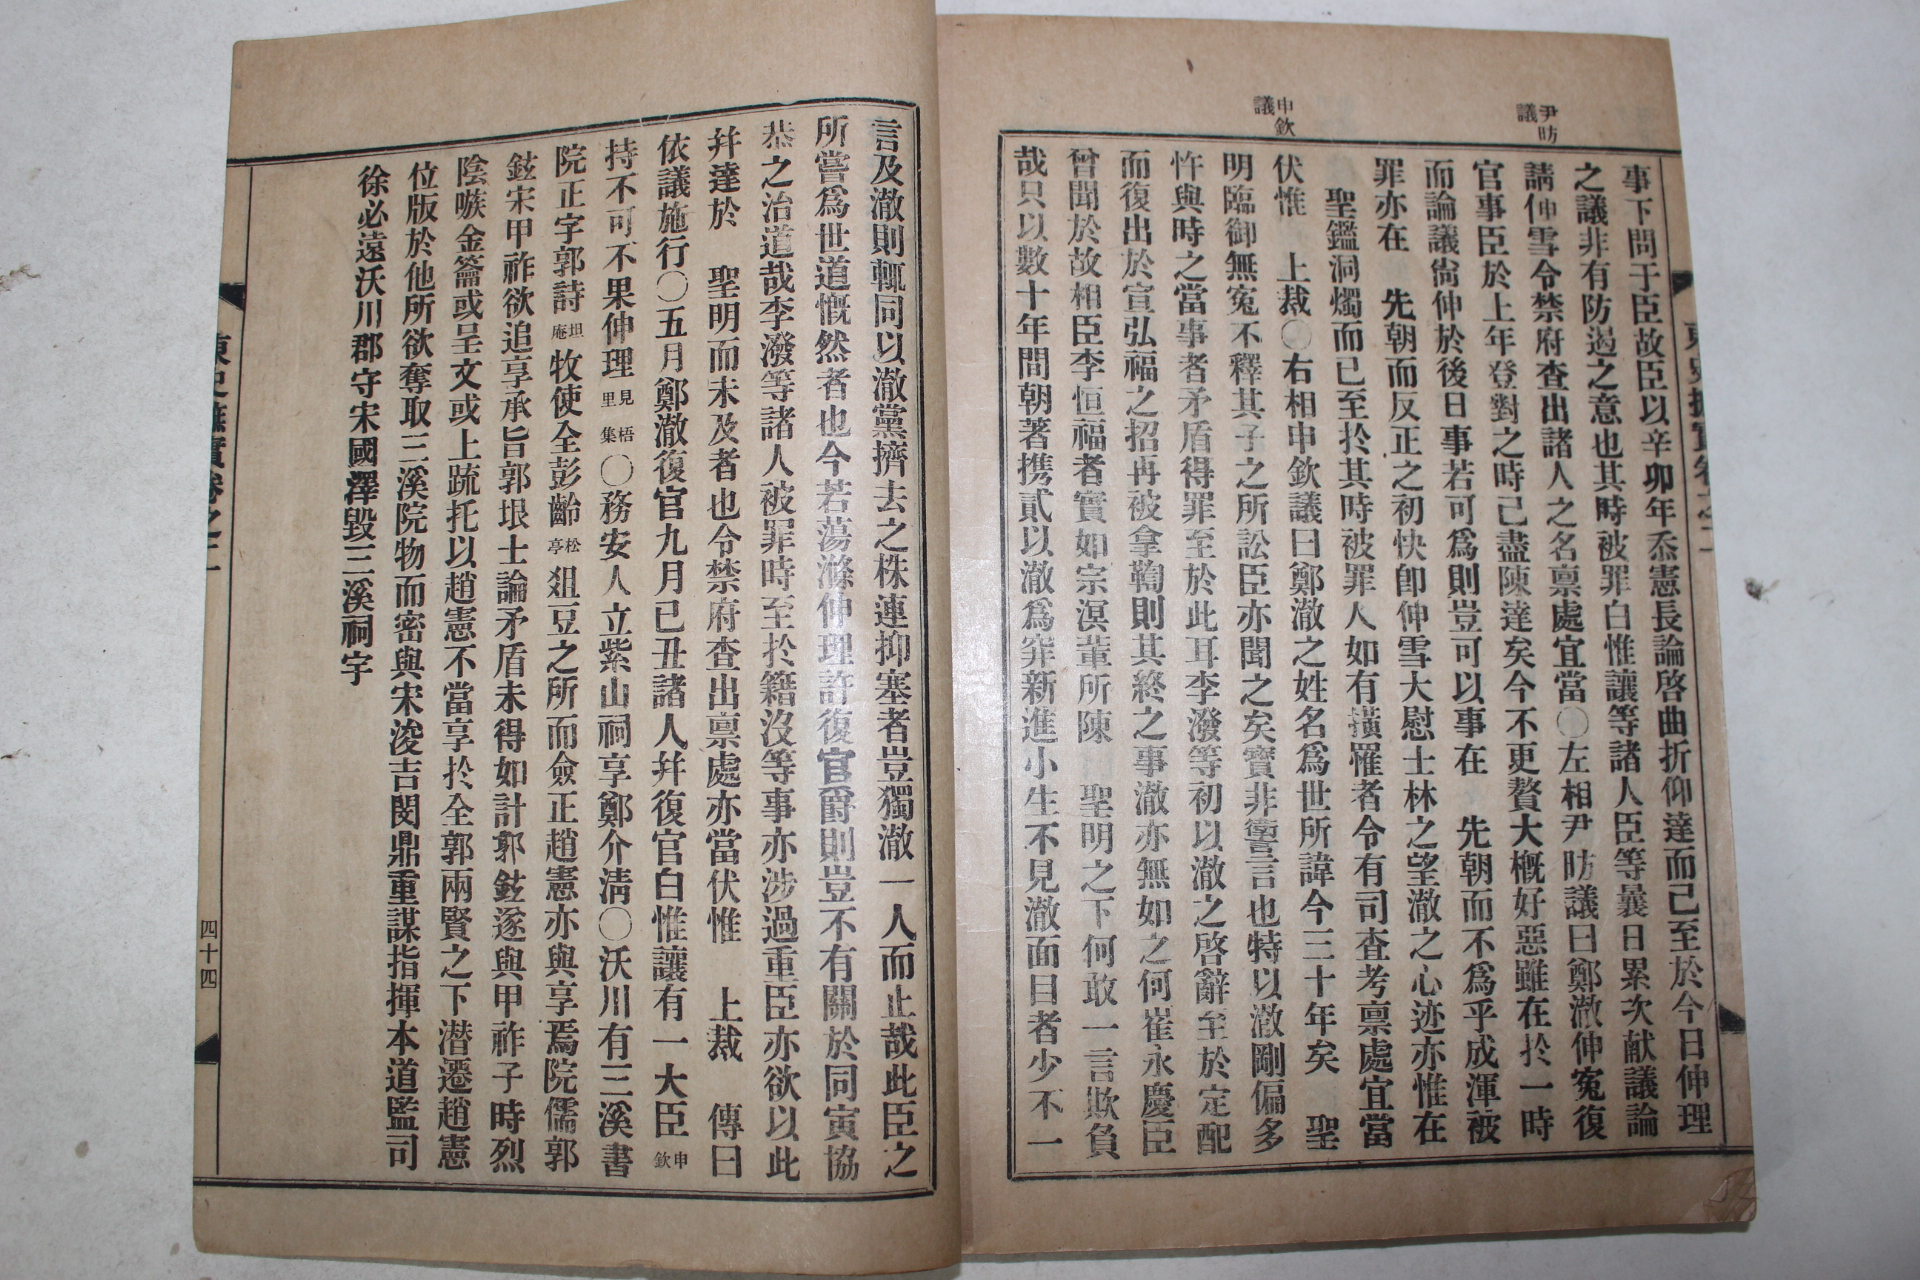 尹昉議
申欽議
事下問于臣故臣以辛卯年忝憲長論啓曲折仰達而已至於今日伸理
之議非有防遏之意也其時被罪白惟讓等諸人臣等曩日累次献議論
請伸雪令禁府査出諸人之名禀處宜當〇左相尹昉議曰鄭澈伸寃復
官事臣於上年登對之時已盡陳達矣今不更贅大槪好惡雖在於一時
而論議尙伸於後日事若可爲則豈可以事在 先朝而不爲乎成渾被
罪亦在 先朝而反正之初快卽伸雪大慰士林之望澈之心迹亦惟在
聖鑑洞燭而已至於其時被罪人如有橫罹者令有司査考禀處宜當
伏惟 上裁〇右相申欽議曰鄭澈之姓名爲世所諱今三十年矣 聖
明臨御無寃不釋其子之所訟臣亦聞之矣實非讆言也特以澈剛偏多
忤與時之當事者矛盾得罪至於此耳李潑等初以澈之啓辭至於定配
而復出於宣弘福之招再被拿鞫則其終之事澈亦無如之何崔永慶臣
曾聞於故相臣李恒福者實如宗溟輩所陳 聖明之下何敢一言欺負
哉只以數十年間朝著携貳以澈爲穽新進小生不見澈面目者少不一
言及澈則輒同以澈黨擠去之株連抑塞者豈獨澈一人而止哉此臣之
所嘗爲世道慨然者也今若蕩滌伸理許復官爵則豈不有關於同寅協
恭之治道哉李潑等諸人被罪時至於籍沒等事亦涉過重臣亦欲以此
幷達於 聖明而未及者也令禁府査出禀處亦當伏惟 上裁 傳曰
依議施行〇五月鄭澈復官九月己丑諸人幷復官白惟讓有一大臣申欽
持不可不果伸理見梧里集〇務安人立紫山祠享鄭介淸〇沃川有三溪書
院正字郭詩坦庵牧使全彭齡松亭俎豆之所而僉正趙憲亦與享焉院儒郭
鉉宋甲祚欲追享承旨郭垠士論矛盾未得如計郭鉉遂與甲祚子時烈
陰嗾金簥或呈文或上疏托以趙憲不當享於全郭兩賢之下潜遷趙憲
位版於他所欲奪取三溪院物而密與宋浚吉閔鼎重謀指揮本道監司
徐必遠沃川郡守宋國澤毀三溪祠宇
四十四